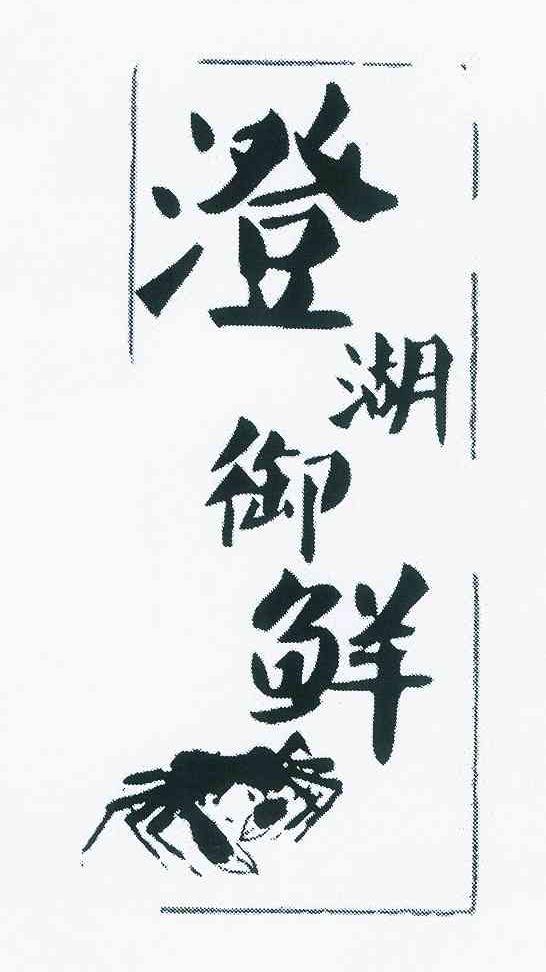 澄湖御鲜